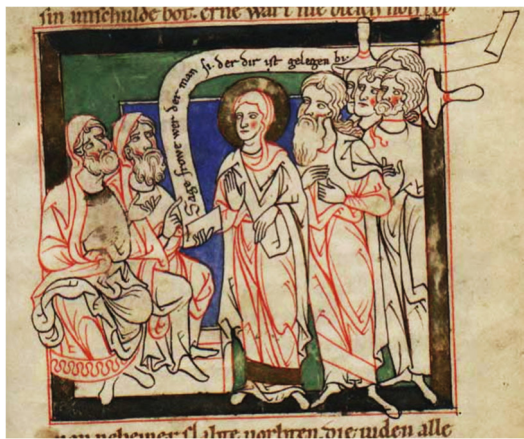 sin unschulde bot. erne wart nie bleich noch rot.
Sage frowe wer der man si. der dir ist gelegen bi.
neheiner slahte vorhten. die iuden alle